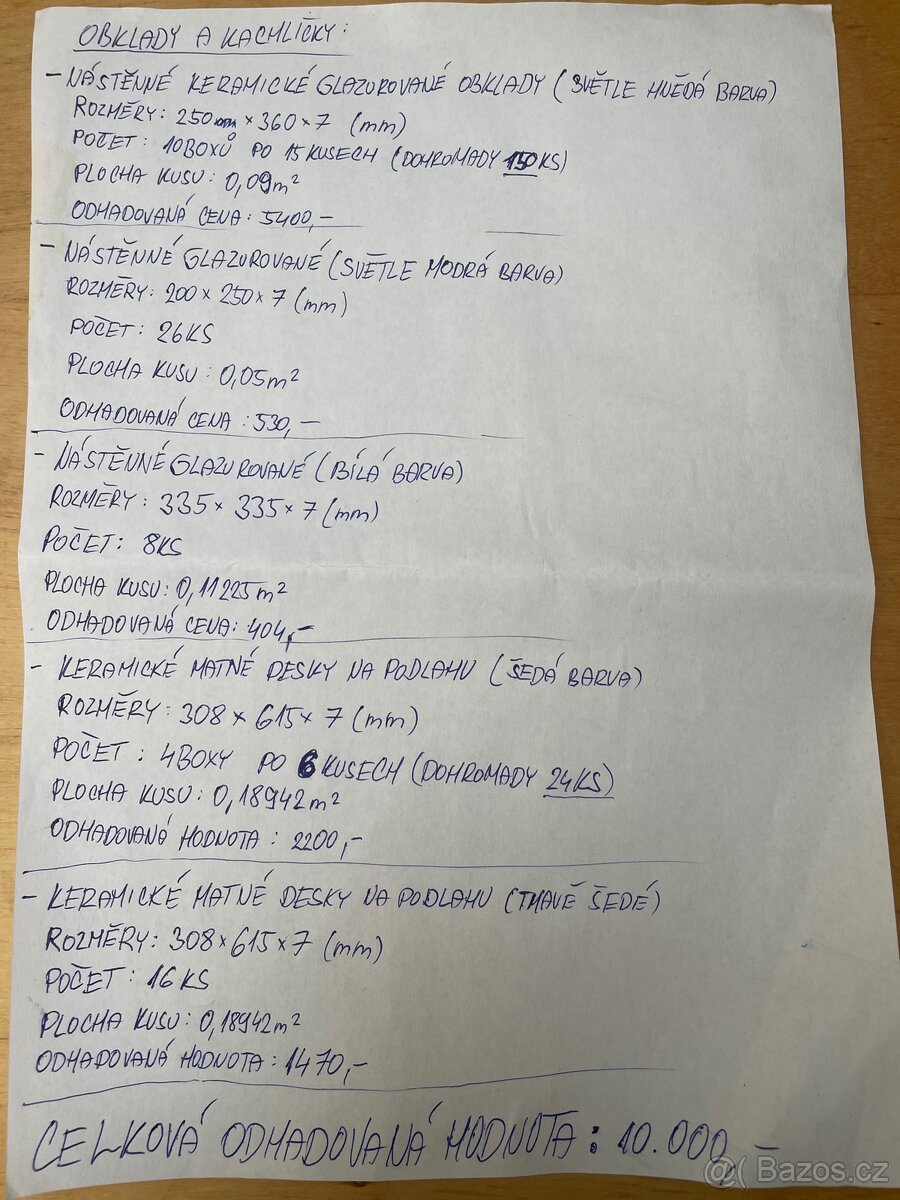 OBKLADY A KACHLIČKY:
- NÁSTĚNNÉ KERAMICKÉ GLAZUROVANÉ OBKLADY (SVĚTLE HNĚDÁ BARVA)
ROZMĚRY: 250 × 360 × 7 (mm)
POČET: 10BOXŮ PO 15 KUSECH (DOHROMADY 150KS)
PLOCHA KUSU: 0,09m²
ODHADOVANÁ CENA: 5400,-
- NÁSTĚNNÉ GLAZUROVANÉ (SVĚTLE MODRÁ BARVA)
ROZMĚRY: 200 × 250 × 7 (mm)
POČET: 26KS
PLOCHA KUSU: 0,05m²
ODHADOVANÁ CENA: 530,-
- NÁSTĚNNÉ GLAZUROVANÉ (BÍLÁ BARVA)
ROZMĚRY: 335 × 335 × 7 (mm)
POČET: 8KS
PLOCHA KUSU: 0,11225m²
ODHADOVANÁ CENA: 404,-
- KERAMICKÉ MATNÉ DESKY NA PODLAHU (ŠEDÁ BARVA)
ROZMĚRY: 308 × 615 × 7 (mm)
POČET: 4BOXY PO 6 KUSECH (DOHROMADY 24KS)
PLOCHA KUSU: 0,18942m²
ODHADOVANÁ HODNOTA: 2200,-
- KERAMICKÉ MATNÉ DESKY NA PODLAHU (TMAVĚ ŠEDÉ)
ROZMĚRY: 308 × 615 × 7 (mm)
POČET: 16KS
PLOCHA KUSU: 0,18942m²
ODHADOVANÁ HODNOTA: 1470,-
CELKOVÁ ODHADOVANÁ HODNOTA: 10.000,-
@( Bazos.cz